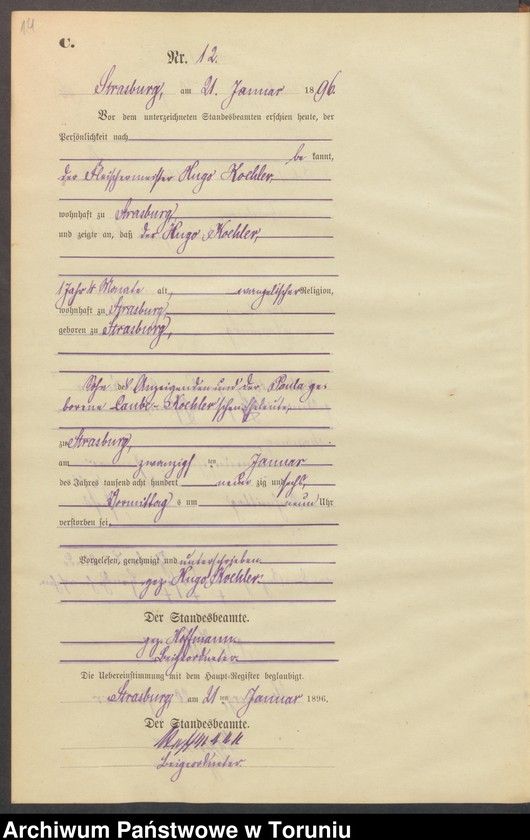 C.
Nr. 12.
Strasburg, am 21. Januar 1896.
Vor dem unterzeichneten Standesbeamten erschien heute, der
Persönlichkeit nach
be kannt,
der Fleischermeister Hugo Koehler,
wohnhaft zu Strasburg,
und zeigte an, daß der Hugo Koehler,
1 Jahr 4 Monate alt, evangelischer Religion,
wohnhaft zu Strasburg,
geboren zu Strasburg,
Sohn des Anzeigenden und der Paula ge-
borene Laube- Koehler'schen Eheleute,
zu Strasburg,
am zwanzigsten Januar
des Jahres tausend acht hundert neun zig und sechs,
Vormittag s um neun Uhr
verstorben sei.
Vorgelesen, genehmigt und unterschrieben
gez. Hugo Koehler.
Der Standesbeamte.
gez. Hoffmann
Beigeordneter.
Die Uebereinstimmung mit dem Haupt-Register beglaubigt.
Strasburg am 21 ten Januar 1896.
Der Standesbeamte.
Hoffmann
Beigeordneter.
Archiwum Państwowe w Toruniu